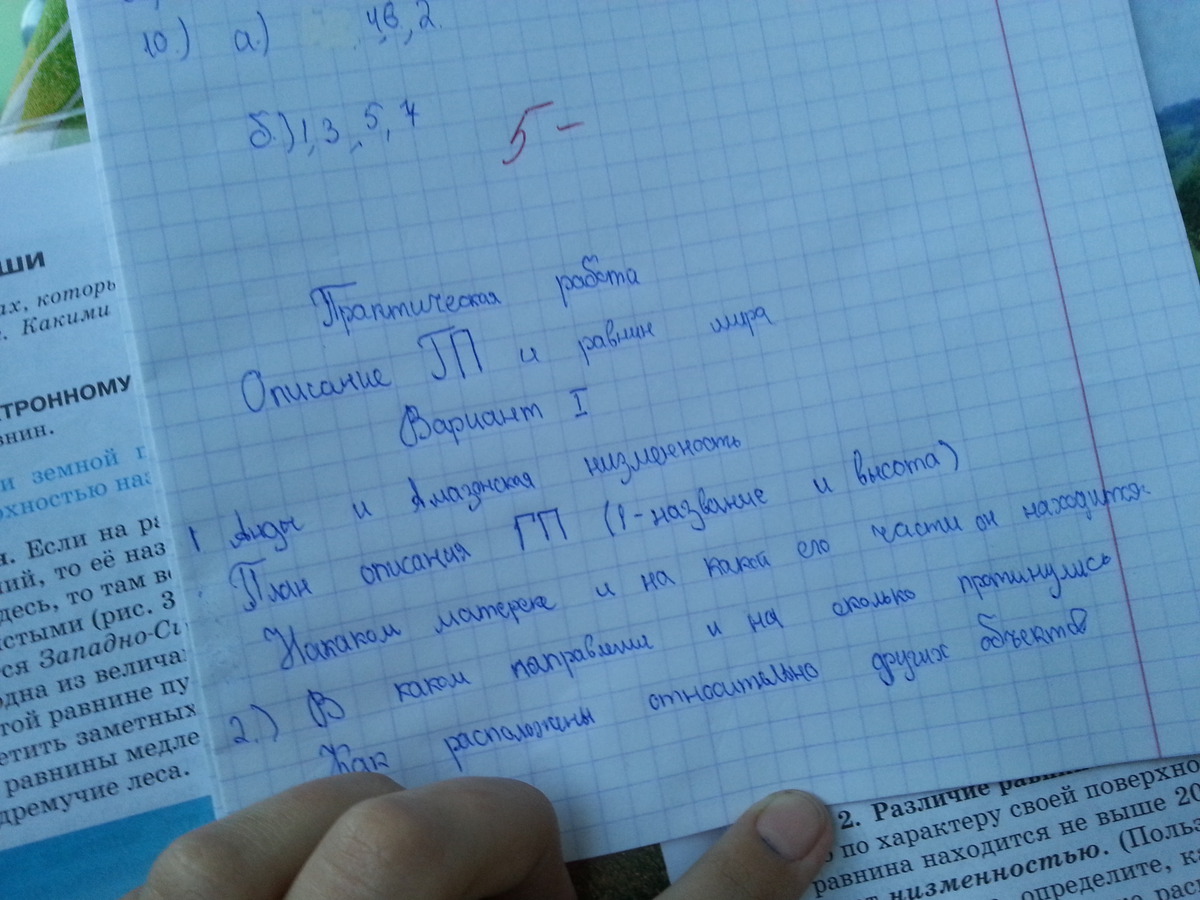 10.) а.) 4в, 2.
б.) 1, 3, 5, 7
5-
Практическая работа
Описание ГП и равнин мира
Вариант I
1 Анды и Амазонская низменность
План описания ГП (1-название и высота)
Накаком матереке и на какой его части он находится.
2.) В каком направлении и на сколько протинулись
Как расположены относительно других объектов
ШИ
ах, которь
е. Какими
КТРОННОМУ
внин.
и земной п
рхностью наз
н. Если на ра
ний, то её наз
десь, то там во
истыми (рис. 3
ся Западно-Си
одна из велича
той равнине пу
етить заметных
равнины медле
дремучие леса.
2. Различие равнин
по характеру своей поверхно
равнина находится не выше 20
низменностью. (Польз
определите, ка